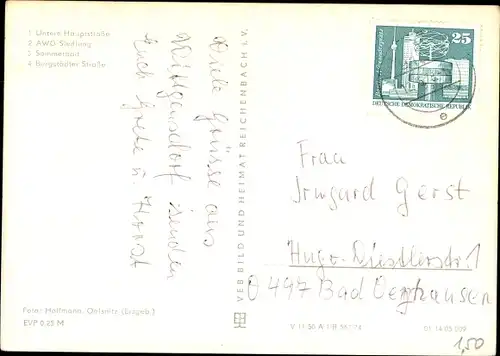 1 Untere Hauptstraße
2 AWG-Siedlung
3 Sommerbad
4 Burgstädter Straße
Viele Grüsse aus
Wittgensdorf senden
Euch Grete u. Horst
VEB BILD UND HEIMAT REICHENBACH i. V.
25
DEUTSCHE DEMOKRATISCHE REPUBLIK
Frau
Irmgard Gerst
Hugo-Distlerstr. 1
D 497 Bad Oeynhausen
Foto: Hoffmann, Oelsnitz (Erzgeb.)
EVP 0.25 M
V 11 50 A
01 14 05 009
1,50